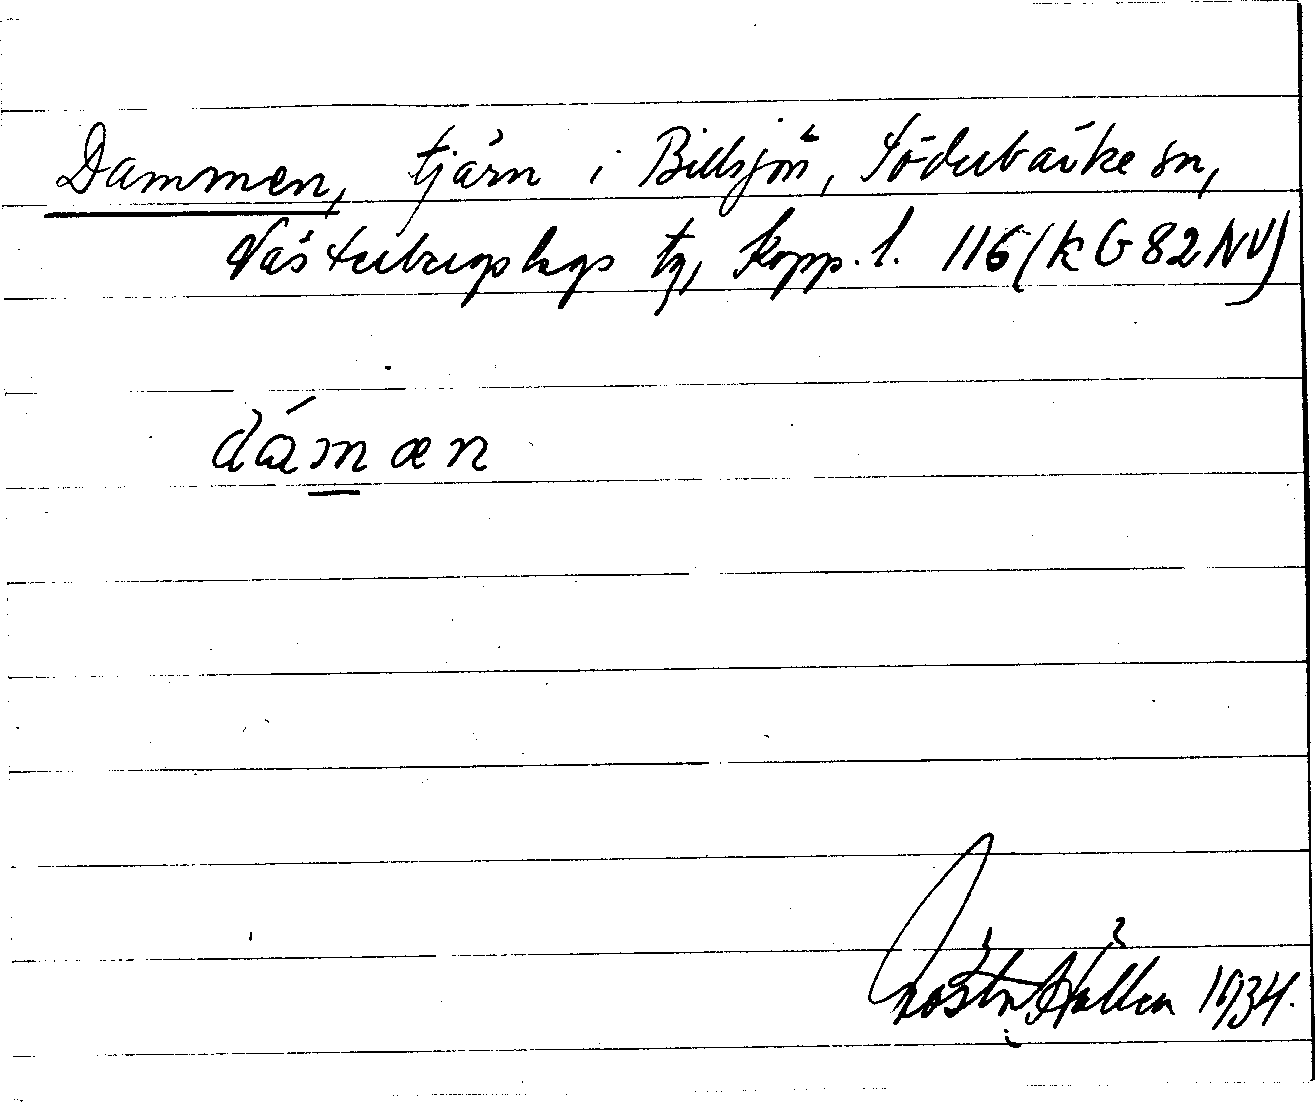 Dammen, tjärn i Billsjön, Söderbärke sn,
Västerbergslags tg, Kopp. l. 116 (k G 82 NV)
dámæn
Gösta Hallén 1934.